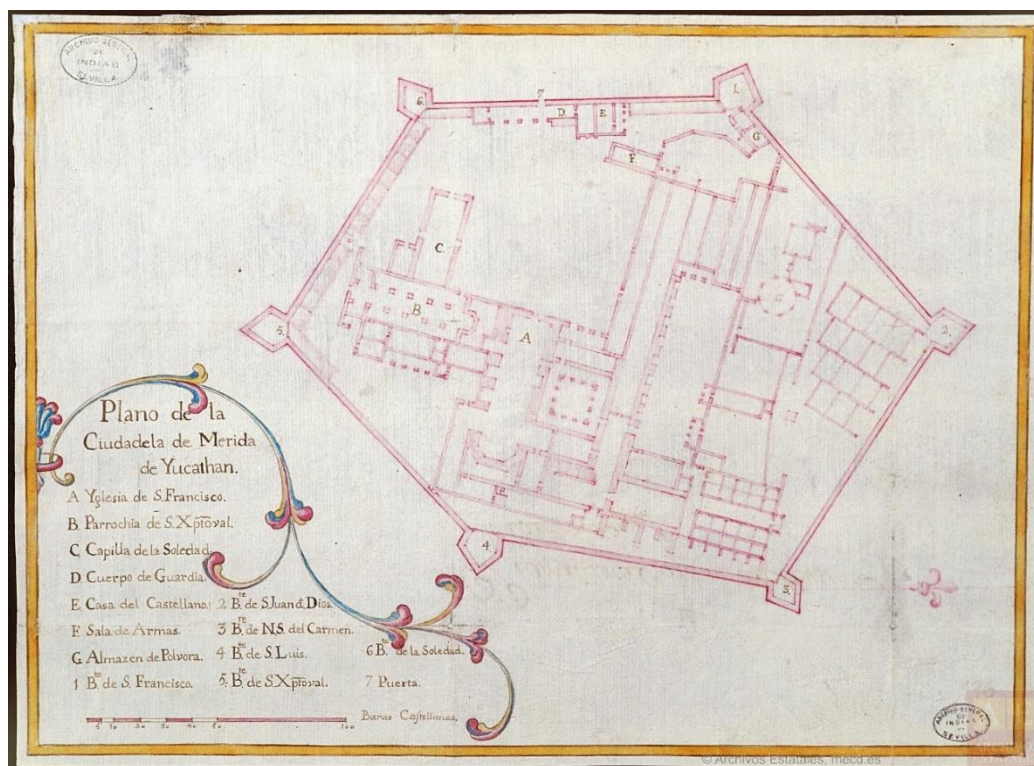 ARCHIVO GENERAL
DE
INDIAS
SEVILLA
6.
7
1.
D.
E.
G
F.
C.
B
A
5.
2.
4.
3.
Plano de la
Ciudadela de Merida
de Yucathan.
A Yglesia de S. Francisco.
B Parrochia de S. Xptoval.
C Capilla de la Soledad.
D Cuerpo de Guardia.
E Casa del Castellano.
F Sala de Armas.
G Almazen de Polvora.
1 B.te de S. Francisco.
2 B.te de S. Juan d Dios.
3 B.te de N.S. del Carmen.
4 B.te de S. Luis.
5. B.te de S. Xptoval.
6 B.te de la Soledad.
7 Puerta.
5 10 20 30 40 50 100 Baras Castellanas.
ARCHIVO GENERAL
DE
INDIAS
SEVILLA
© Archivos Estatales, mecd.es